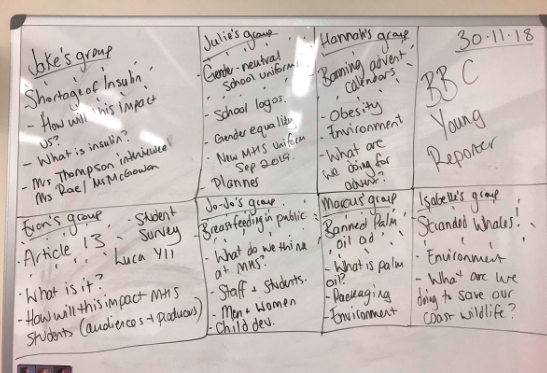 Jake's group
Shortage of Insulin
- How will this impact
us?
- What is insulin?
- Mrs Thompson interviewee
Mrs Rae / Ms McGowan
Julia's group
- Gender-neutral
school uniforms
- School logos.
- Gender equality
- New MHS uniform
Sep 2019.
- Planner
Hannah's group
Banning advent
calendars
- Obesity
- Environment
- What are
we doing for
advent?
30-11-18
BBC
Young
Reporter
group
- Article 13
- Student
Survey
Luca Y11
- What is it?
- How will this impact MHS
students (audiences + producers)
Jo-Jo's group
Breastfeeding in public
- What do we think
at MHS?
- Staff + students.
- Men + Women
- Child dev.
Marcus' group
Banned Palm
oil ad
- What is palm
oil?
- Packaging
- Environment
Isabelle's group
Stranded Whales!
- Environment
- What are we
doing to save our
coast wildlife?